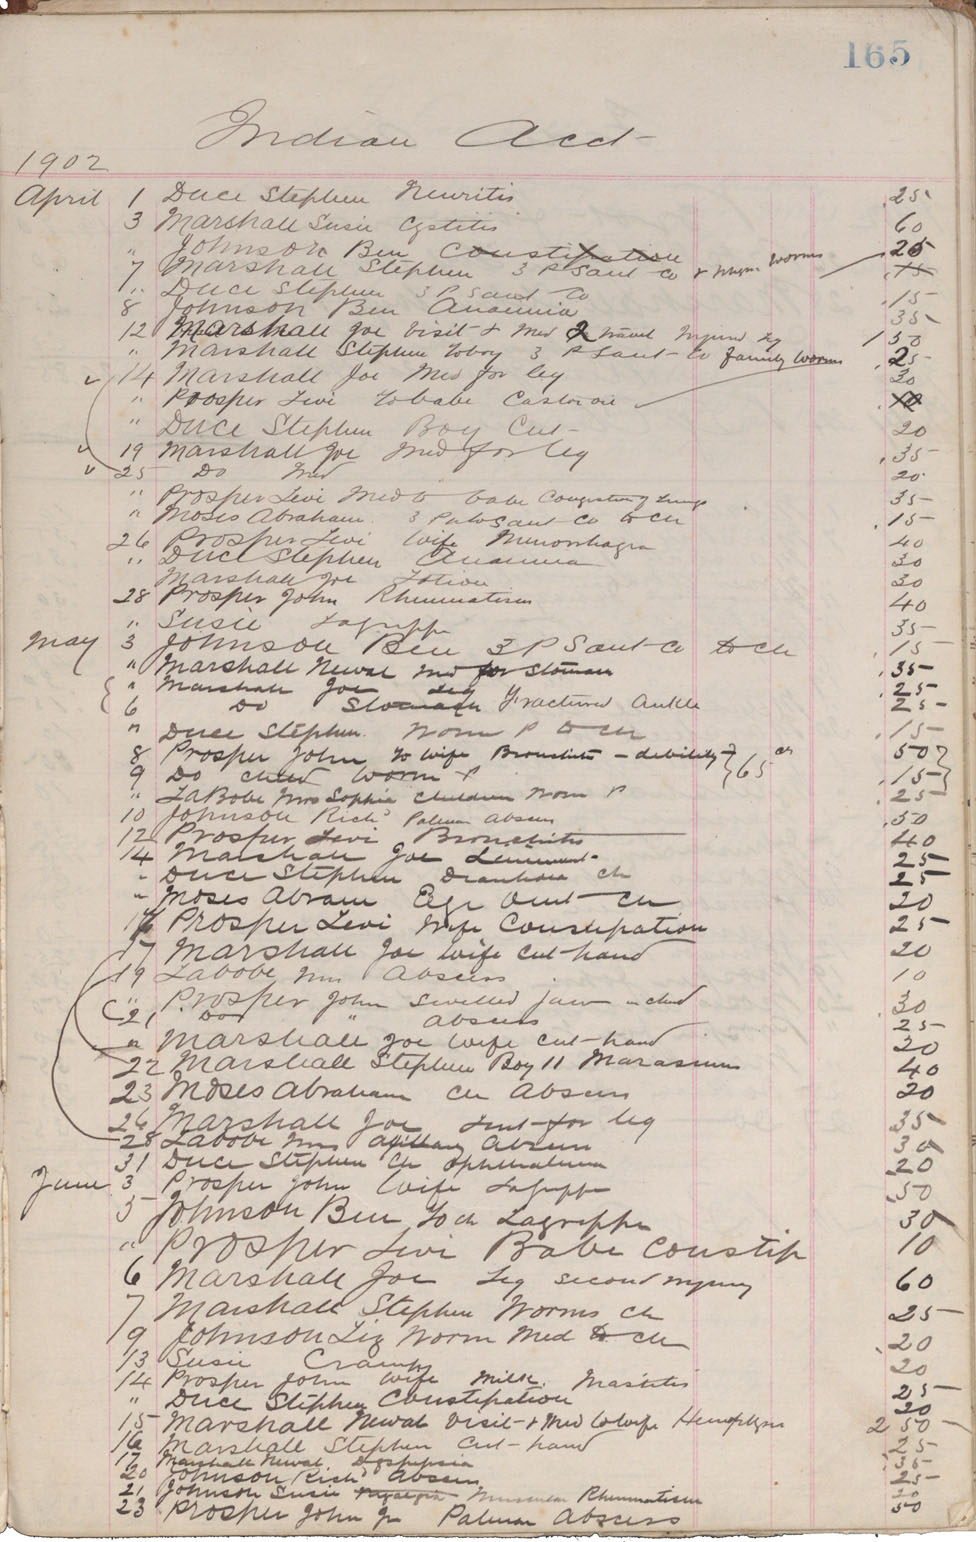 165
Indian Acct
1902
April 1 Duce Stephen Neuritis 25
3 Marshall Susie Cystitis 60
" Johnson Ben Constipation 25
7 Marshall Stephen 3 P Sant Co + worms 15
" Duce Stephen 3 P Sant Co 15
8 Johnson Ben Anaemia 35
12 Marshall Joe Visit + Med 2 travel Injured leg 1 50
" Marshall Stephen to boy 3 P Sant Co family worms 25
14 Marshall Joe Med for leg 30
" Prosper Levi to babe Castor oil 10
" Duce Stephen Boy Cut 20
19 Marshall Joe Med for leg 35
25 Do Med 20
" Prosper Levi Med to babe Congestion of Lungs 35
" Moses Abraham 3 Pulv Sant Co to ch 15
26 Prosper Levi Wife Menorrhagia 40
" Duce Stephen Anaemia 30
Marshall Joe Lotion 30
28 Prosper John Rheumatism 40
" Susie Lagrippe 35
May 3 Johnson Ben 3 P Sant Co to ch 15
" Marshall Newal Med for Stomach 35
" Marshall Joe Leg 25
6 Do Stomach Fractured Ankle 25
" Duce Stephen Worm P to ch 15
8 Prosper John to wife Bronchitis - debility 50
9 Do child worm P 65 cts 15
" LaBobe Mrs Sophie children Worm P 25
10 Johnson Richd Palmar Abscess 50
12 Prosper Levi Bronchitis 40
14 Marshall Joe Liniment 25
" Duce Stephen Diarrhoea ch 25
" Moses Abram Eye Oint ch 20
16 Prosper Levi Wife Constipation 25
17 Marshall Joe wife cut hand 20
19 Labobe Mrs Abscess 10
" Prosper John Swelled jaw child 30
21 Do " abscess 25
" Marshall Joe wife cut hand 20
22 Marshall Stephen Boy 11 Marasmus 40
23 Moses Abraham ch Abscess 20
26 Marshall Joe for leg 35
28 Labobe Mrs Axillary Abscess 30
31 Duce Stephen Ch Ophthalmia 20
June 3 Prosper John Wife LaGrippe 50
5 Johnson Ben To ch Lagrippe 30
" Prosper Levi Babe Constip 10
6 Marshall Joe Leg second injury 60
7 Marshall Stephen Worms ch 25
9 Johnson Liz Worm Med to ch 20
13 Susie Cramps 20
14 Prosper John Wife Milk Mastitis 25
" Duce Stephen Constipation 20
15 Marshall Newal Visit + Med to wife Hemoptysis 2 50
16 Marshall Stephen Cut hand 25
17 Marshall Newal Dyspepsia 35
20 Johnson Richd Abscess 25
21 Johnson Susie Myalgia Muscular Rheumatism 20
23 Prosper John Jr Palmar Abscess 50